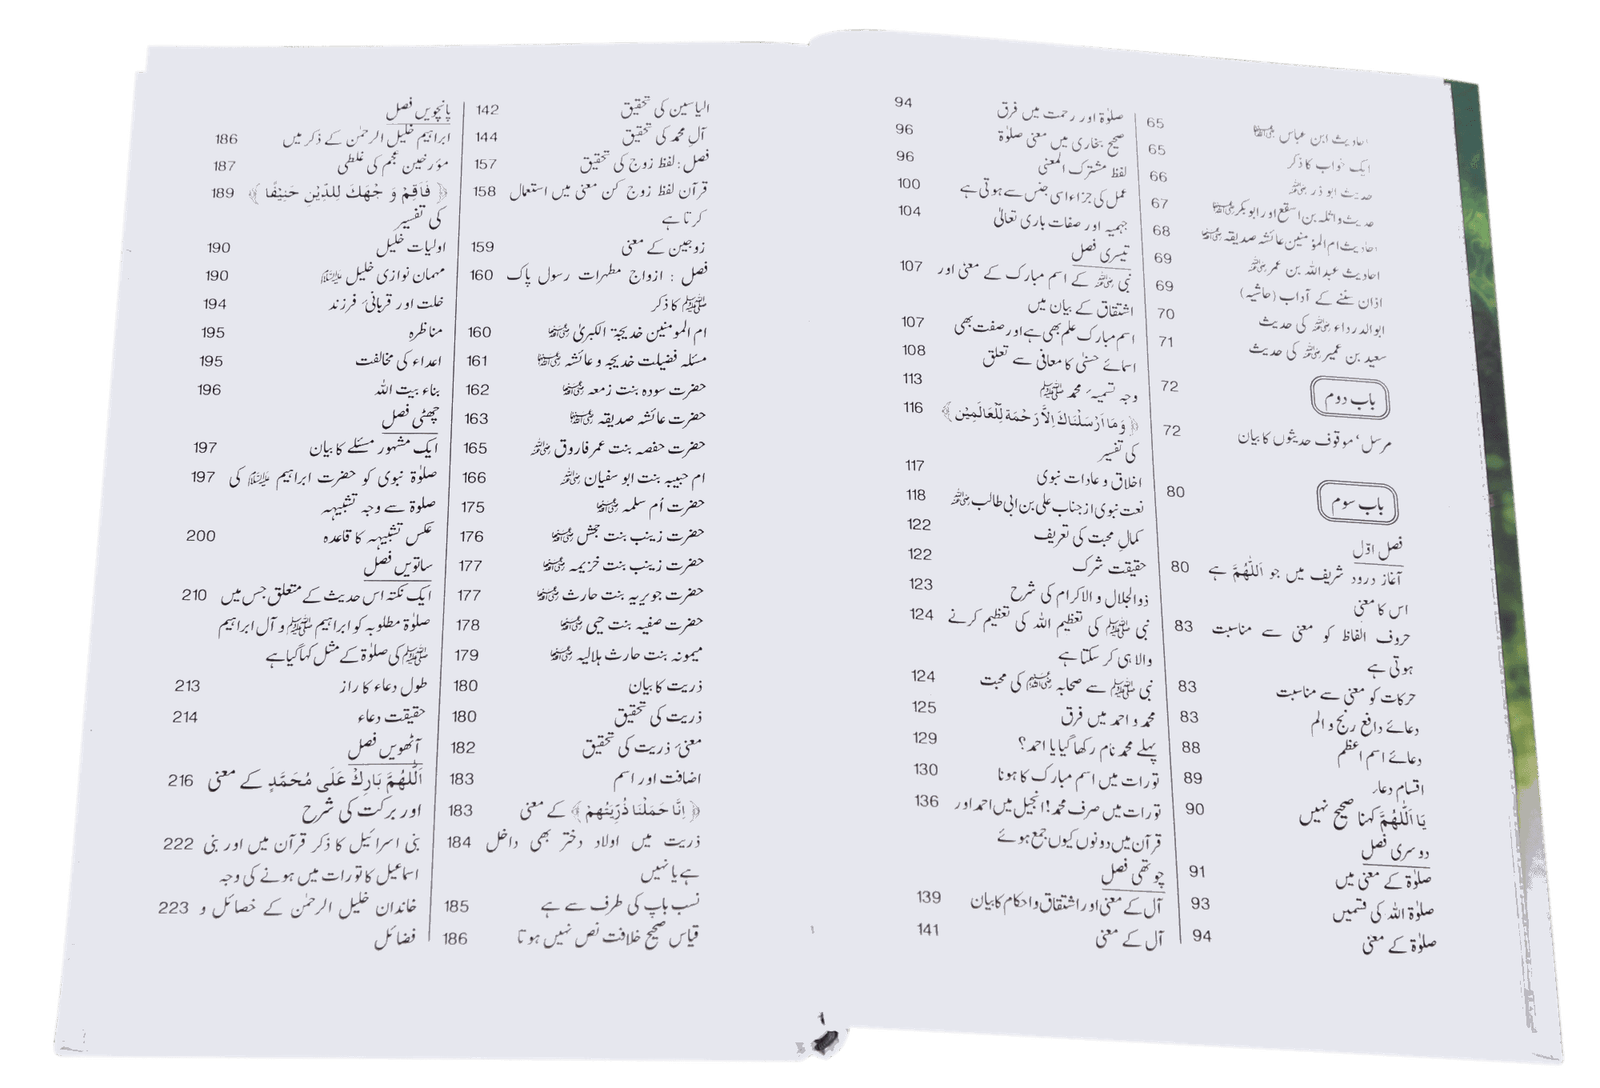 احادیث ابن عباس ﷺ 65
ایک خواب کا ذکر 65
حدیث ابو ذر 66
حدیث واثلہ بن اسقع اور ابوبکر 67
احادیث ام المؤمنین عائشہ صدیقہ 68
احادیث عبداللہ بن عمر 69
اذان سننے کے آداب (حاشیہ) 69
ابوالدرداء کی حدیث 70
سعید بن عمیر کی حدیث 71
باب دوم 72
مرسل، موقوف حدیثوں کا بیان 72
باب سوم 80
فصل اوّل
آغاز درود شریف میں جو اَللّٰهُمَّ ہے 80
اس کا معنی
حروف الفاظ کو معنی سے مناسبت 83
ہوتی ہے
حرکات کو معنی سے مناسبت 83
دعائے دافع رنج و الم 83
دعائے اسم اعظم 88
اقسام دعاء 89
یَا اَللّٰهُمَّ کہنا صحیح نہیں 90
دوسری فصل
صلوٰۃ کے معنی میں 91
صلوٰۃ اللہ کی قسمیں 93
صلوٰۃ کے معنی 94
صلوٰۃ اور رحمت میں فرق 94
صحیح بخاری میں معنی صلوٰۃ 96
لفظ مشترک المعنی 96
عمل کی جزاء اسی جنس سے ہوتی ہے 100
جہمیہ اور صفات باری تعالیٰ 104
تیسری فصل
نبی ﷺ کے اسم مبارک کے معنی اور 107
اشتقاق کے بیان میں
اسم مبارک علم بھی ہے اور صفت بھی 107
اسمائے حسنیٰ کا معانی سے تعلق 108
وجہ تسمیہ محمد ﷺ 113
﴿وَمَا اَرْسَلْنَاكَ اِلَّا رَحْمَةً لِّلْعَالَمِيْنَ﴾ 116
کی تفسیر
اخلاق و عادات نبوی 117
نعت نبوی از جناب علی بن ابی طالب 118
کمالِ محبت کی تعریف 122
حقیقت شرک 122
ذوالجلال والاکرام کی شرح 123
نبی ﷺ کی تعظیم اللہ کی تعظیم کرنے 124
والا ہی کر سکتا ہے
نبی ﷺ سے صحابہ کی محبت 124
محمد و احمد میں فرق 125
پہلے محمد نام رکھا گیا یا احمد؟ 129
تورات میں اسم مبارک کا ہونا 130
تورات میں صرف محمد! انجیل میں احمد اور 136
قرآن میں دونوں کیوں جمع ہوئے
چوتھی فصل
آل کے معنی اور اشتقاق و احکام کا بیان 139
آل کے معنی 141
الیاسین کی تحقیق 142
آلِ محمد کی تحقیق 144
فصل: لفظ زوج کی تحقیق 157
قرآن لفظ زوج کن معنی میں استعمال 158
کرتا ہے
زوجین کے معنی 159
فصل : ازواج مطہرات رسول پاک 160
ﷺ کا ذکر
ام المومنین خدیجۃ الکبریٰ 160
مسئلہ فضیلت خدیجہ و عائشہ 161
حضرت سودہ بنت زمعہ 162
حضرت عائشہ صدیقہ 163
حضرت حفصہ بنت عمر فاروق 165
ام حبیبہ بنت ابو سفیان 166
حضرت اُم سلمہ 175
حضرت زینب بنت جحش 176
حضرت زینب بنت خزیمہ 177
حضرت جویریہ بنت حارث 177
حضرت صفیہ بنت حیی 178
میمونہ بنت حارث ہلالیہ 179
ذریت کا بیان 180
ذریت کی تحقیق 180
معنیٔ ذریت کی تحقیق 182
اضافت اور اسم 183
﴿اِنَّا حَمَلْنَا ذُرِّيَّتَهُمْ﴾ کے معنی 183
ذریت میں اولاد دختر بھی داخل 184
ہے یا نہیں
نسب باپ کی طرف سے ہے 185
قیاس صحیح خلافت نص نہیں ہوتا 186
پانچویں فصل
ابراہیم خلیل الرحمٰن کے ذکر میں 186
مؤرخین عجم کی غلطی 187
﴿فَاَقِمْ وَجْهَكَ لِلدِّيْنِ حَنِيْفًا﴾ 189
کی تفسیر
اولیات خلیل 190
مہمان نوازی خلیل 190
خلت اور قربانیٔ فرزند 194
مناظرہ 195
اعداء کی مخالفت 195
بناء بیت اللہ 196
چھٹی فصل
ایک مشہور مسئلے کا بیان 197
صلوٰۃ نبوی کو حضرت ابراہیم کی 197
صلوٰۃ سے وجہ تشبیہہ
عکس تشبیہہ کا قاعدہ 200
ساتویں فصل
ایک نکتہ اس حدیث کے متعلق جس میں 210
صلوٰۃ مطلوبہ کو ابراہیم ﷺ و آل ابراہیم
ﷺ کی صلوٰۃ کے مثل کہا گیا ہے
طول دعاء کا راز 213
حقیقت دعاء 214
آٹھویں فصل
اَللّٰهُمَّ بَارِكْ عَلٰی مُحَمَّدٍ کے معنی 216
اور برکت کی شرح
بنی اسرائیل کا ذکر قرآن میں اور بنی 222
اسماعیل کا تورات میں ہونے کی وجہ
خاندان خلیل الرحمٰن کے خصائل و 223
فضائل